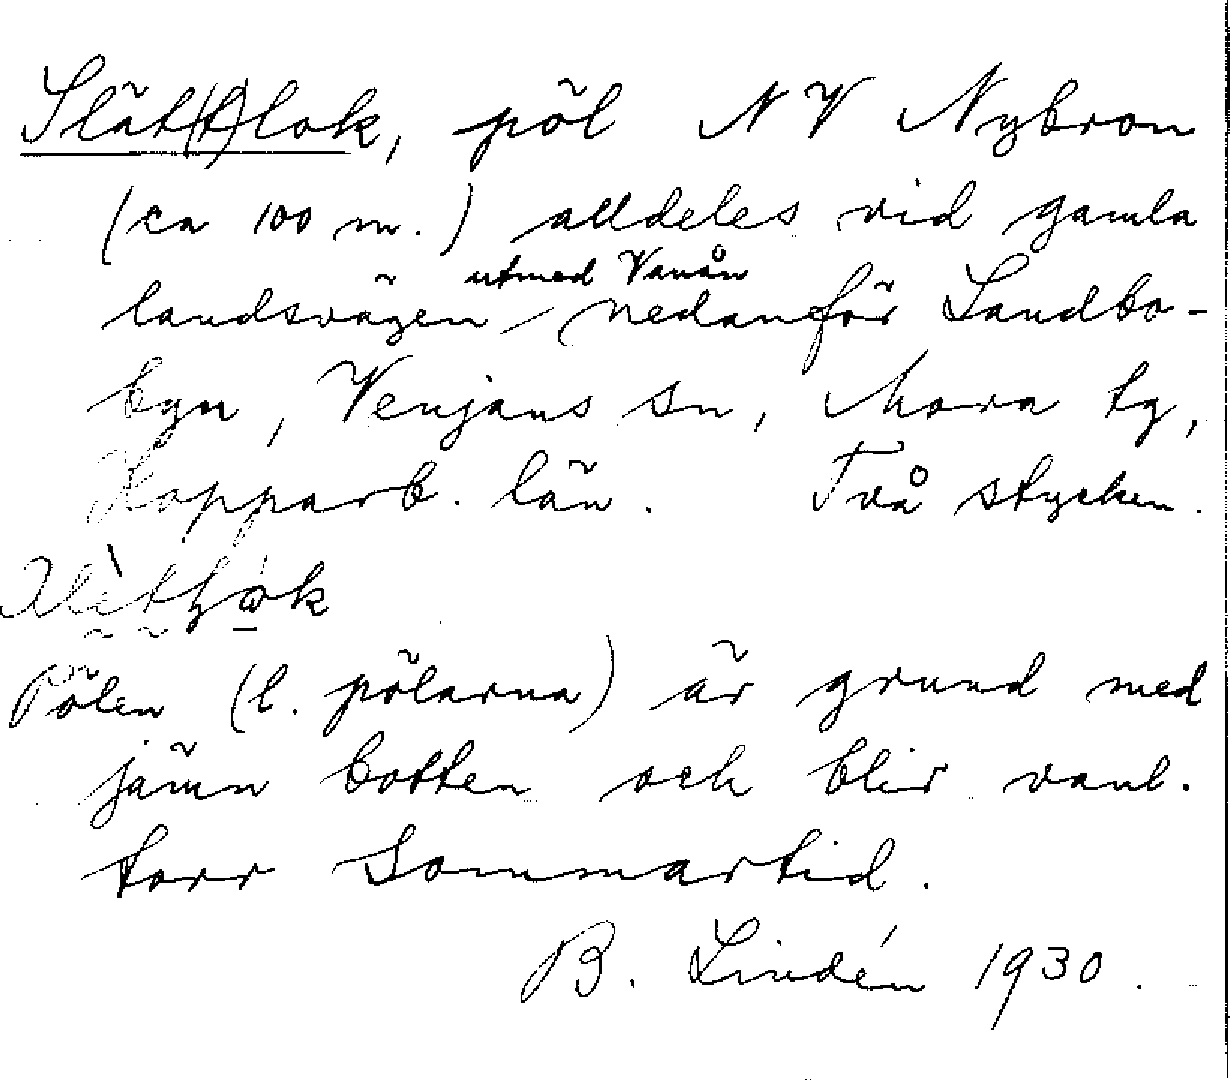 Slät(t)lok, pöl NV Nybron
(ca 100 m.) alldeles vid gamla
landsvägen utmed Vanån nedanför Landbo-
byn, Venjans sn, Mora tg,
Kopparb. län. Två stycken.
Pölen (l. pölarna) är grund med
jämn botten och blir vanl.
torr sommartid.
B. Lindén 1930.